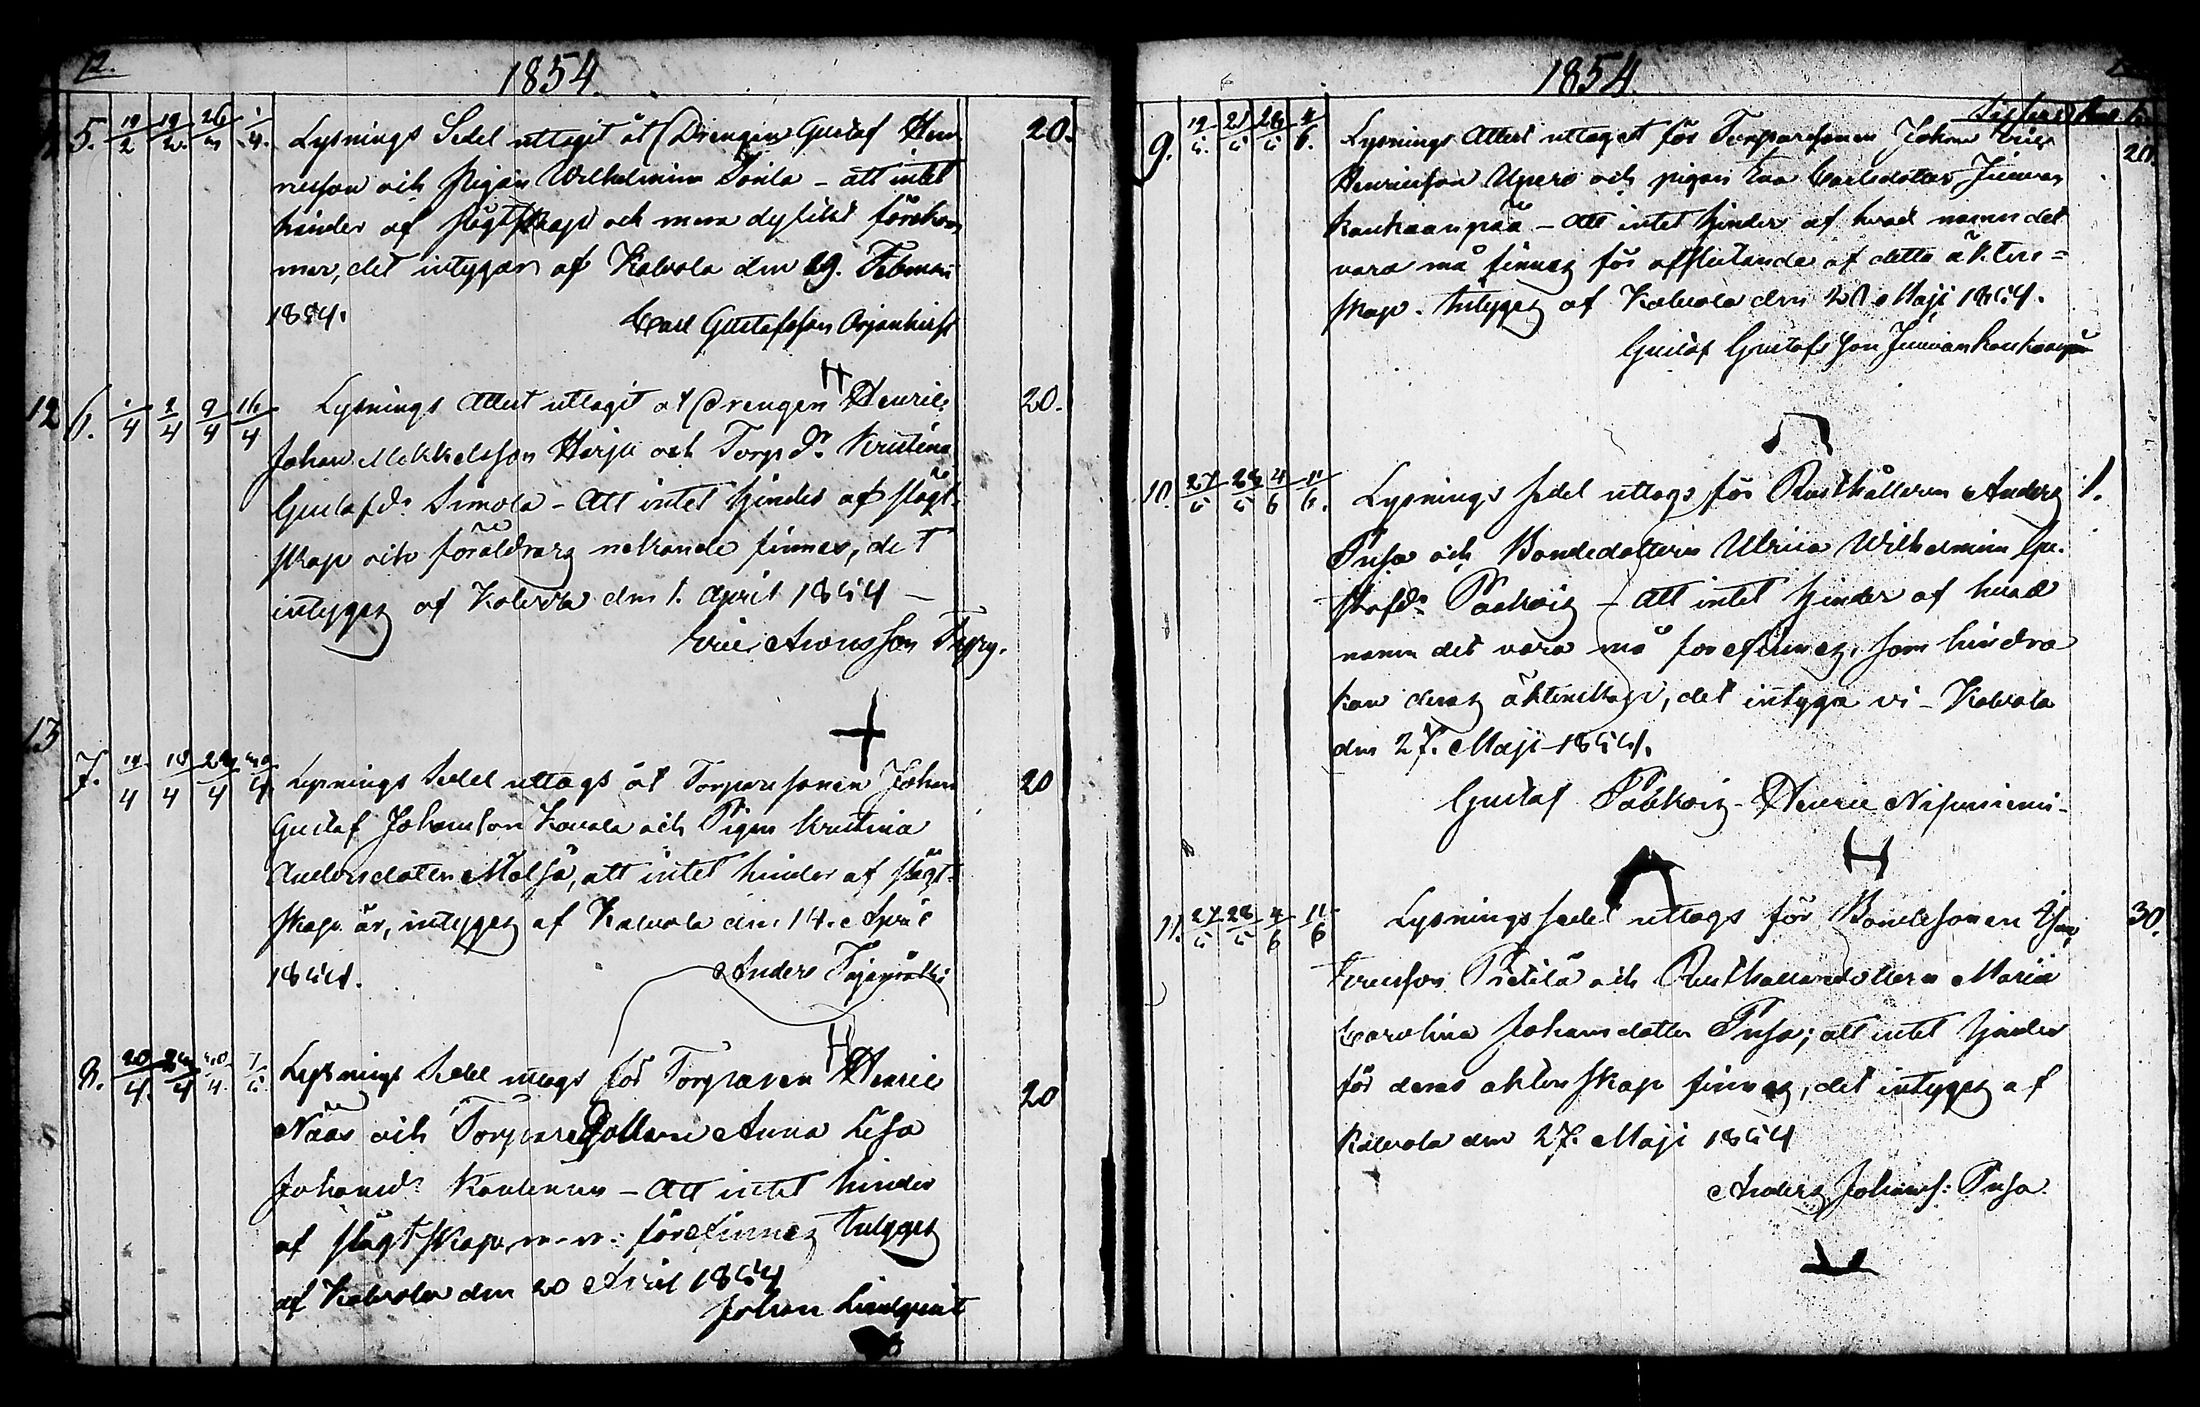 12.
1854.
5. 19/2 19/2 26/2 4. Lysnings Sedel uttagit åt Drengen Gustaf Hen- 20.
ricsson och Pigan Wilhelmina Toila – att intet
hinder af slägtskap och mera dylikt förekom
mer, det intygar af Kalvola den 19. Februari
1854.
Carl Gustafsson Orjanhirsi
12 6. 1/4 2/4 9/4 16/4 Lysnings Attest uttagit åt Drengen Henric 20.
Johan Mekkelsson Harju och Torpd:r Kristina
Gustafsd:r Simola – Att intet hinder af slägt-
skap och föräldrars nekande finnes, det
intygas af Kalvola den 1. April 1854 –
Eric Aronsson Thyry.
13
7. 14/4 24/4 Lysnings Sedel uttags åt Torparesonen Johan 20
Gustaf Johansson Kanala och Pigan Kristina
Andersdotter Målsä, att intet hinder af slägt-
skap är, intygas af Kalvola den 14. April
1854.
Anders
8. 20/4 24/4 30/4 Lysnings Sedel uttags för Torparen Henric 20
Nääs och Torparedottern Anna Lisa
Johansd:r – Att intet hinder
af slägtskap m-m: förefinnes Intygas
af Kalvola den 20 April 1854
Johan Lindqvist
1854.
9. 21/5 Lysnings Attest uttaget för Torparesonen Johan Eric 20.
Henricsson Upero och pigan Eva Carlsdotter Junnan
Kankaanpää – Att intet hinder af hvad namn det
vara må finnes för afslutande af detta äkten=
skap. Intygas af Kalvola den 20 Maji 1854.
Gustaf Gustafsson Junnan Kankaanpää
10. 27/5 28/5 4/6 11/6. Lysnings sedel uttags för Rusthållaren Anders 1.
Pusa och Bondedottern Ulrica Wilhelmina Gu-
stafsd:r – Att intet hinder af hvad
namn det vara må förefinnes, som hindra
kan deras äktenskap, det intyga vi – Kalvola
den 27. Maji 1854.
Gustaf Henric Nisuniemi-
11. 27/5 28/5 4/6 11/6 Lysningssedel uttags för Bondesonen 30.
Ericsson Pietilä och Rusthållaredottern Maria
Carolina Johansdotter Pusa; att intet hinder
för deras äktenskap finnes, det intygas af
Kalvola den 27. Maji 1854
Anders Johanss: Pusa